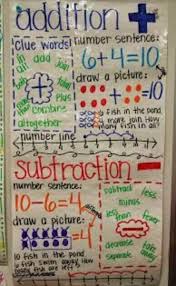 addition +
Clue words!
in all
add
join
plus
more
combine
altogether
number sentence:
6+4=10
draw a picture:
+ =10
6 fish in the pond
4 more join. How
many fish in all?
number line
subtraction
number sentence:
10-6=4
draw a picture:
=4
10 fish in the pond
6 fish swim away. How
many fish are left?
subtract
less
minus
less than
fewer
decrease
separate